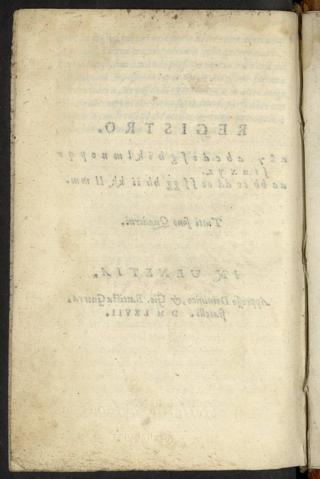 REGISTRO.
a b c d e f g h i k l m n o p q r
s t u x y z.
aa bb cc dd ee ff gg hh ii kk ll mm.
Tutti sono Quaderni.
IN VENETIA,
Appresso Dominico, & Gio. Battista Guerra,
fratelli. D M LXVII.